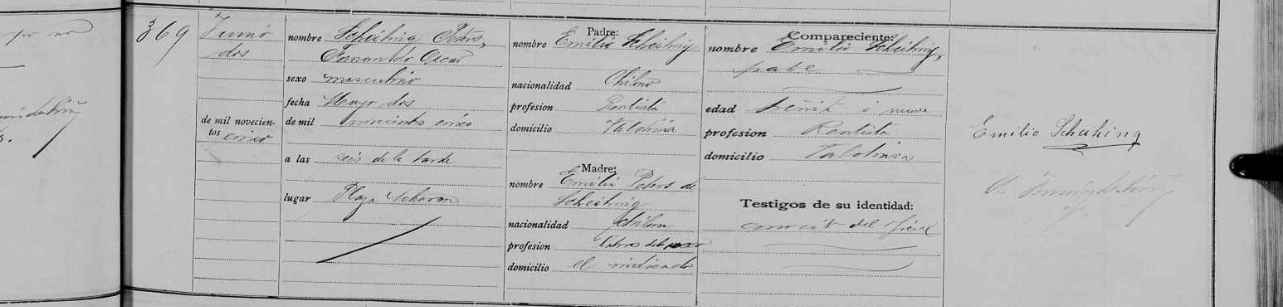 369
Junio
dos
de mil novecien-
tos cinco
nombre Scheihing Peters,
Fernando Oscar
sexo masculino
fecha Mayo dos
de mil novecientos cinco
a las seis de la tarde
lugar Plaza
Padre:
nombre Emilio Scheihing
nacionalidad Chileno
profesion Rentista
domicilio Valdivia
Madre:
nombre Emilia Peters de
Scheihing
nacionalidad Chilena
profesion labores del sexo
domicilio el indicado
Compareciente:
nombre Emilio Scheihing,
padre
edad veinte i nueve
profesion Rentista
domicilio Valdivia
Testigos de su identidad:
conocido del oficial
Emilio Scheihing